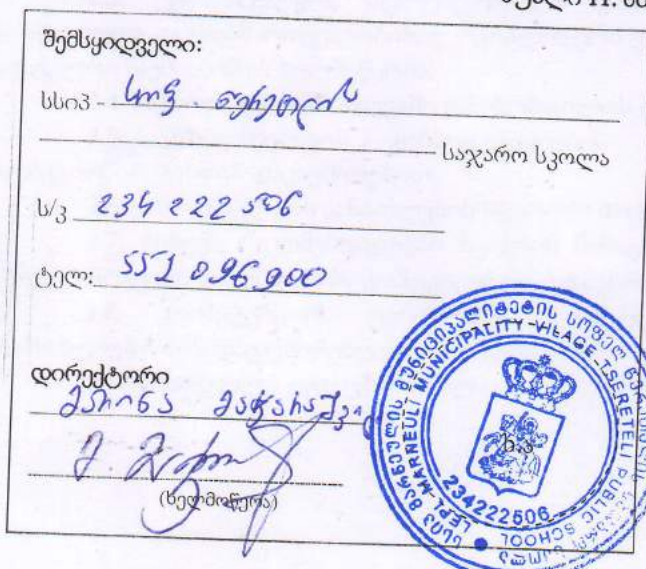 შემსყიდველი:
სსიპ - სოფ. წერეთლის
საჯარო სკოლა
ს/კ 234 222 506
ტელ: 551 096 900
დირექტორი
მარინა
(ხელმოწერა)
ბ.ა
სსიპ მარნეულის მუნიციპალიტეტის სოფელ წერეთლის საჯარო სკოლა
LEPL MARNEULI MUNICIPALITY VILLAGE TSERETELI PUBLIC SCHOOL
234222506